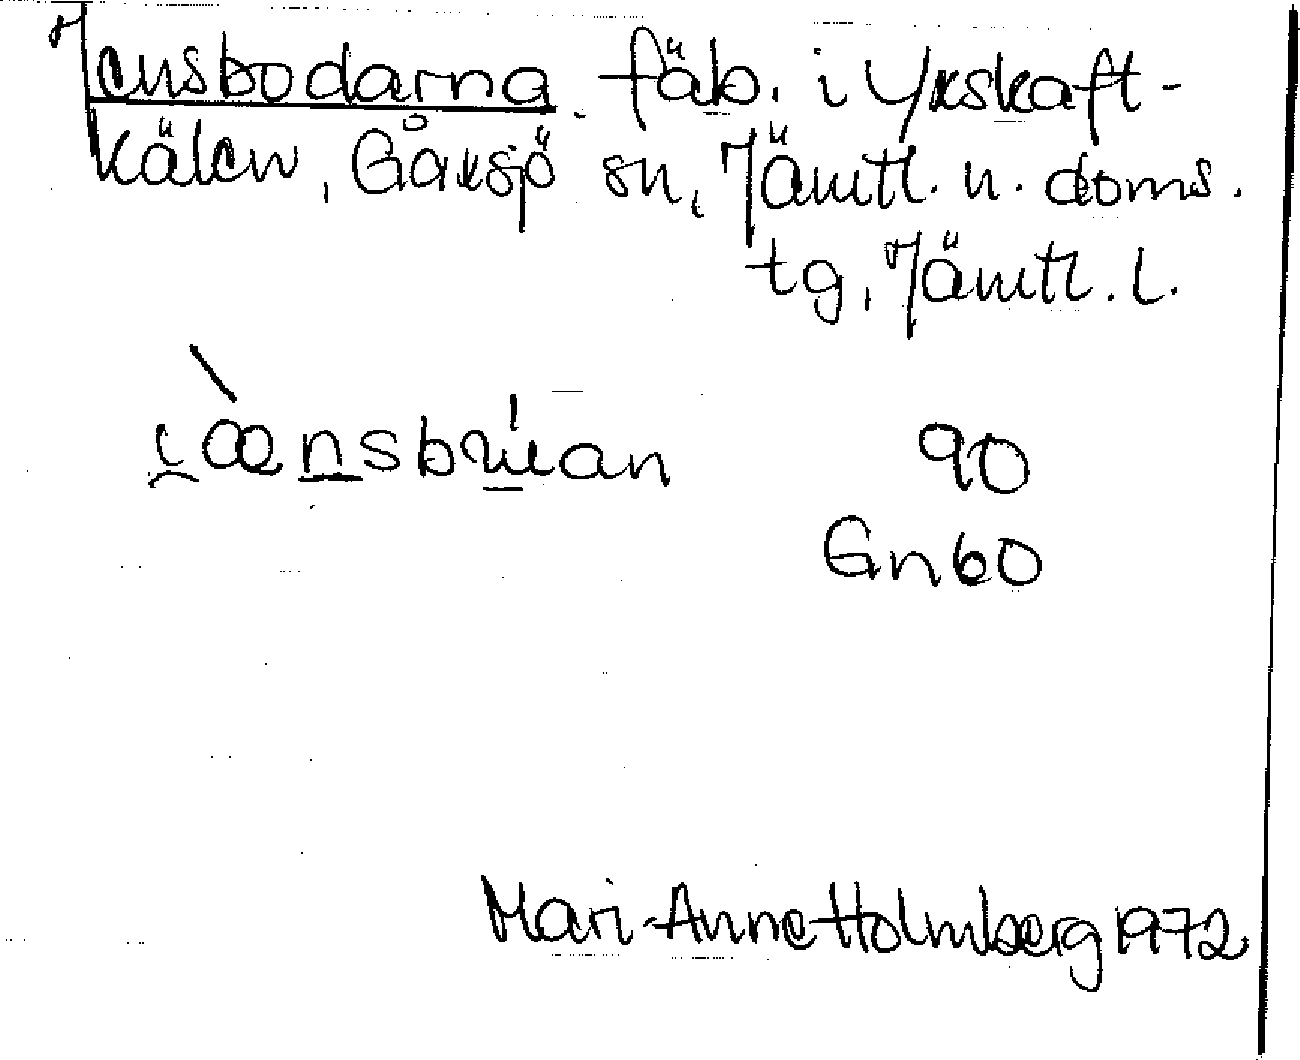 Jensbodarna. fäb. i Yxskaft-
kälen, Gåxsjö sn, Jämtl. n. doms.
tg, Jämtl. l.
90
Gn60
Mari-Anne Holmberg 1972